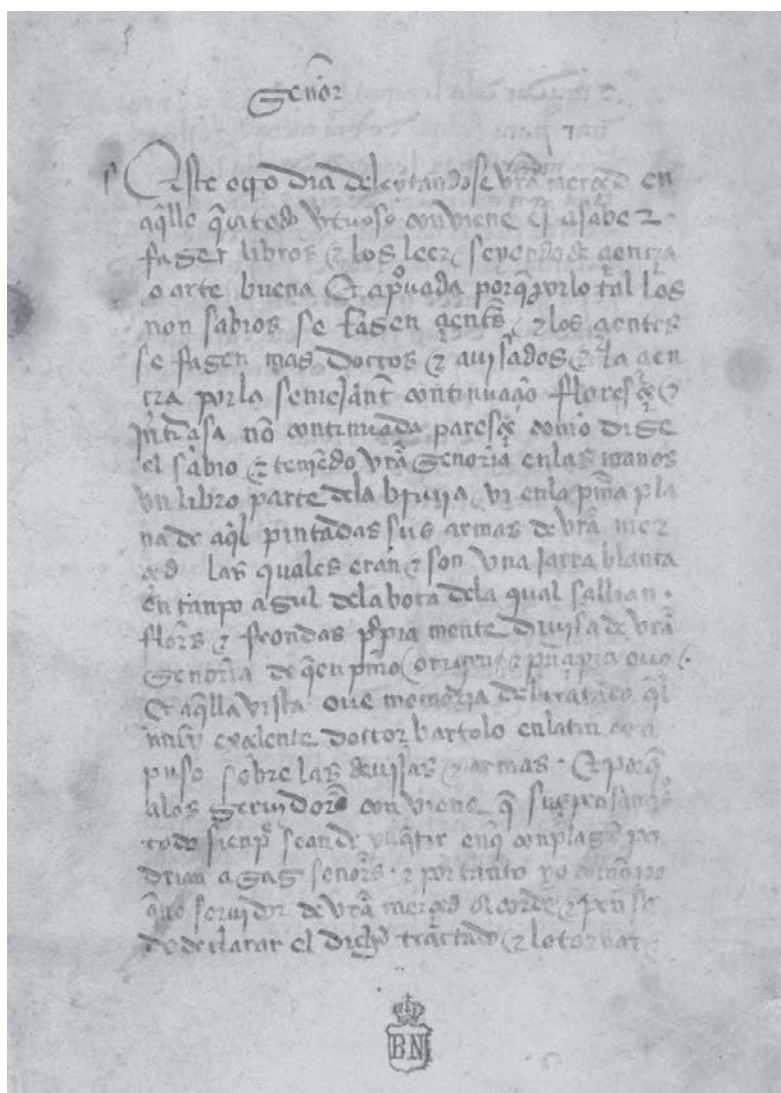 Señor
Este otro dia deleytandose vrã merçed en
aq̃llo q̃ a todo virtuoso conviene es a saber
fazer libros & los leer seyendo de çiençia
o arte buena Et apuada porq̃ por lo tal los
non sabios se fazen çientes & los çientes
se fazen mas doctos & auisados & la çien
çia por la semejãnt continuaçiõ floresçe &
intrasa nõ continuada paresçe como dize
el sabio & teniẽdo vrã señoria en las manos
vn libro parte de la bruija vi en la pm̃a pla
na de aq̃l pintadas sus armas de vrã mer
çed las quales eran & son vna jarra blanca
en canpo azul de la boca de la qual sallian
flors & frondas ppia mente diuisa de vrã
señoria de q̃en pmõ origen & pñçipio ouo
Et aq̃lla vista oue memoria del tratado q̃l
muy exçelente doctor bartolo en latin con
puso sobre las deuisas & armas Et porq̃
a los seruidors conviene q̃ sus pensamiẽ
todo sienp sean de en q̃ conplazer po
drian a sus señors & por tanto yo como pe
q̃no seruidor de vrã merçed acorde & pense
de declarar el dicho tractado & lo tornar
BN